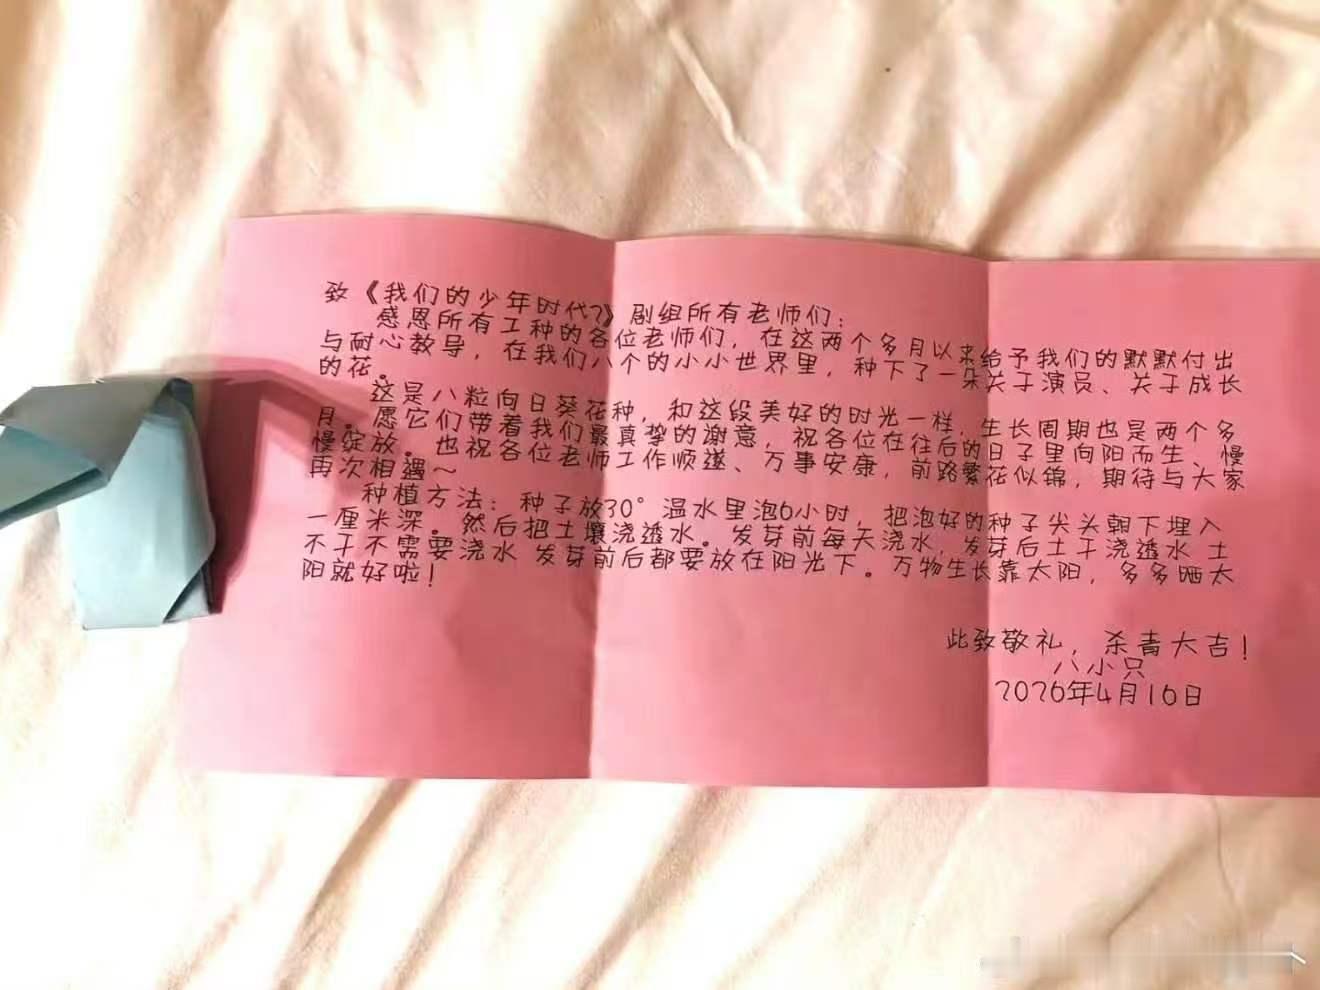 致《我们的少年时代2》剧组所有老师们：
感恩所有工种的各位老师们，在这两个多月以来给予我们的默默付出
与耐心教导，在我们八个的小小世界里，种下了一朵关于演员、关于成长
的花。
这是八粒向日葵花种，和这段美好的时光一样，生长周期也是两个多
月。愿它们带着我们最真挚的谢意，祝各位在往后的日子里向阳而生，慢
慢绽放。也祝各位老师工作顺遂、万事安康，前路繁花似锦，期待与大家
再次相遇～
种植方法：种子放30°温水里泡6小时，把泡好的种子尖头朝下埋入
一厘米深。然后把土壤浇透水。发芽前每天浇水，发芽后土干浇透水 土
不干不需要浇水 发芽前后都要放在阳光下。万物生长靠太阳，多多晒太
阳就好啦！
此致敬礼，杀青大吉！
八小只
2026年4月16日